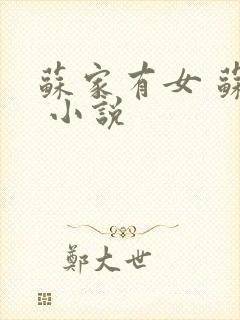 蘇家有女 蘇
小說
鄭大世